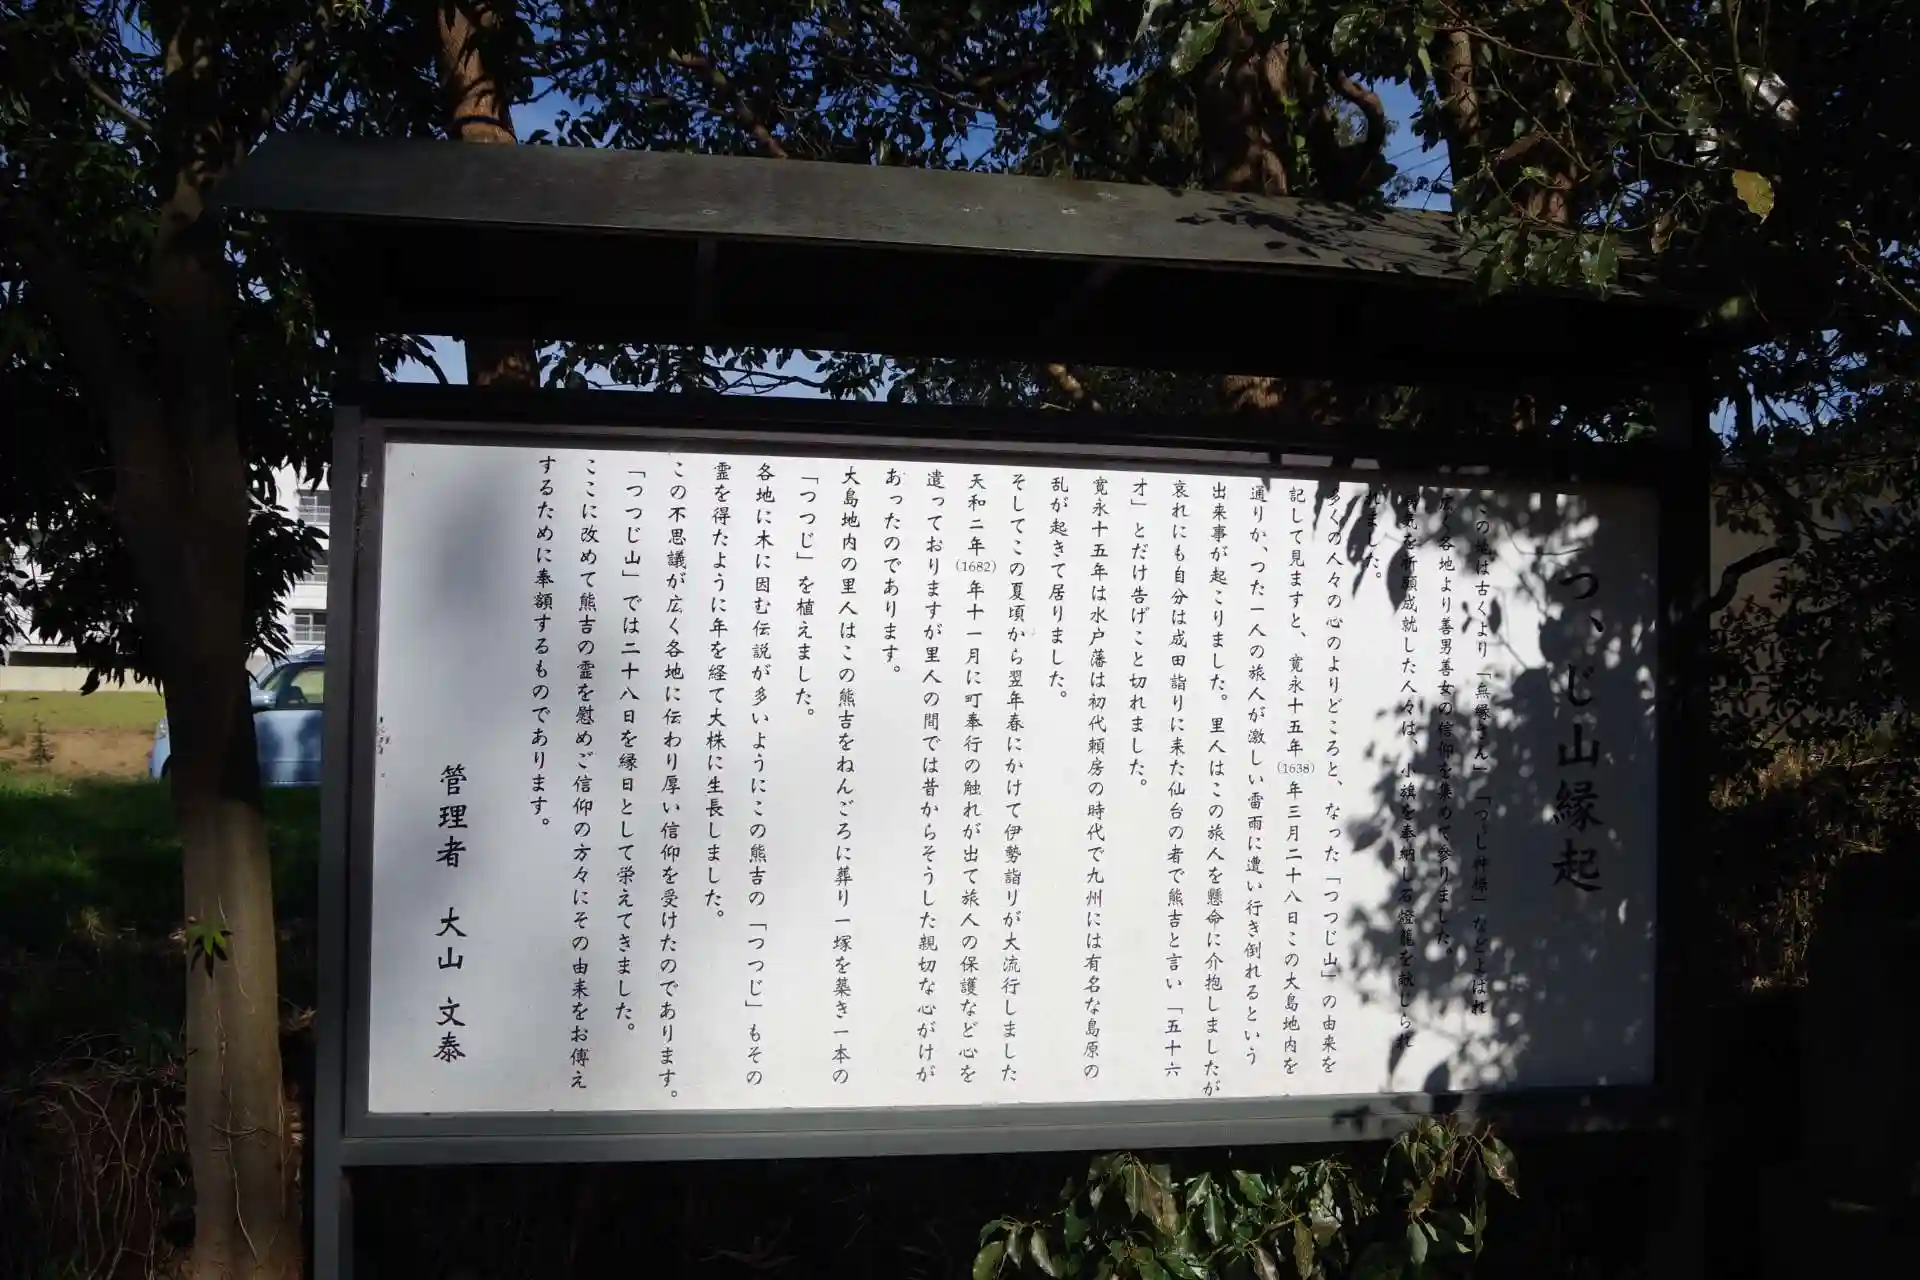 つゝじ山縁起
この地は古くより「無縁さん」「つゝじ件様」などとよばれ
広く各地より善男善女の信仰を集めて参りました。
病気を祈願成就した人々は、小旗を奉納し石燈籠を献じられ
れました。
多くの人々の心のよりどころと、なった「つつじ山」の由来を
記して見ますと、寛永十五年(1638)年三月二十八日この大島地内を
通りか、つた一人の旅人が激しい雷雨に遭い行き倒れるという
出来事が起こりました。里人はこの旅人を懸命に介抱しましたが
哀れにも自分は成田詣りに来た仙台の者で熊吉と言い「五十六
才」とだけ告げこと切れました。
寛永十五年は水戸藩は初代頼房の時代で九州には有名な島原の
乱が起きて居りました。
そしてこの夏頃から翌年春にかけて伊勢詣りが大流行しました
天和二年(1682)年十一月に町奉行の触れが出て旅人の保護など心を
遣っておりますが里人の間では昔からそうした親切な心がけが
あったのであります。
大島地内の里人はこの熊吉をねんごろに葬り一塚を築き一本の
「つつじ」を植えました。
各地に木に因む伝説が多いようにこの熊吉の「つつじ」もその
霊を得たように年を経て大株に生長しました。
この不思議が広く各地に伝わり厚い信仰を受けたのであります。
「つつじ山」では二十八日を縁日として栄えてきました。
ここに改めて熊吉の霊を慰めご信仰の方々にその由来をお傅え
するために奉額するものであります。
管理者　大山　文泰